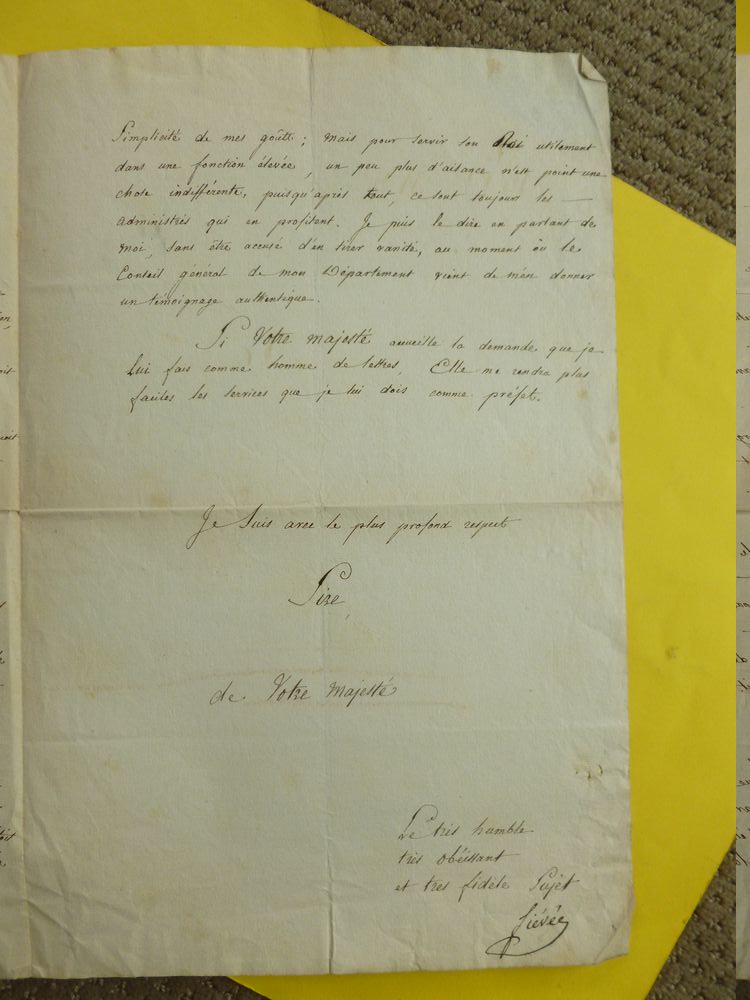 Simplicité de mes goûts ; mais pour servir son Roi utilement
dans une fonction élevée, un peu plus d'aisance n'est point une
chose indifférente, puisqu'après tout, ce sont toujours les —
administrés qui en profitent. Je puis le dire en parlant de
moi, sans être accusé d'en tirer vanité, au moment où le
Conseil général de mon Département vient de m'en donner
un témoignage authentique.
Si Votre majesté accueille la demande que je
Lui fais comme homme de lettres, Elle me rendra plus
faciles les services que je lui dois comme préfet.
Je suis avec le plus profond respect
Sire,
de Votre Majesté
Le très humble
très obéissant
et très fidèle Sujet
fiévée